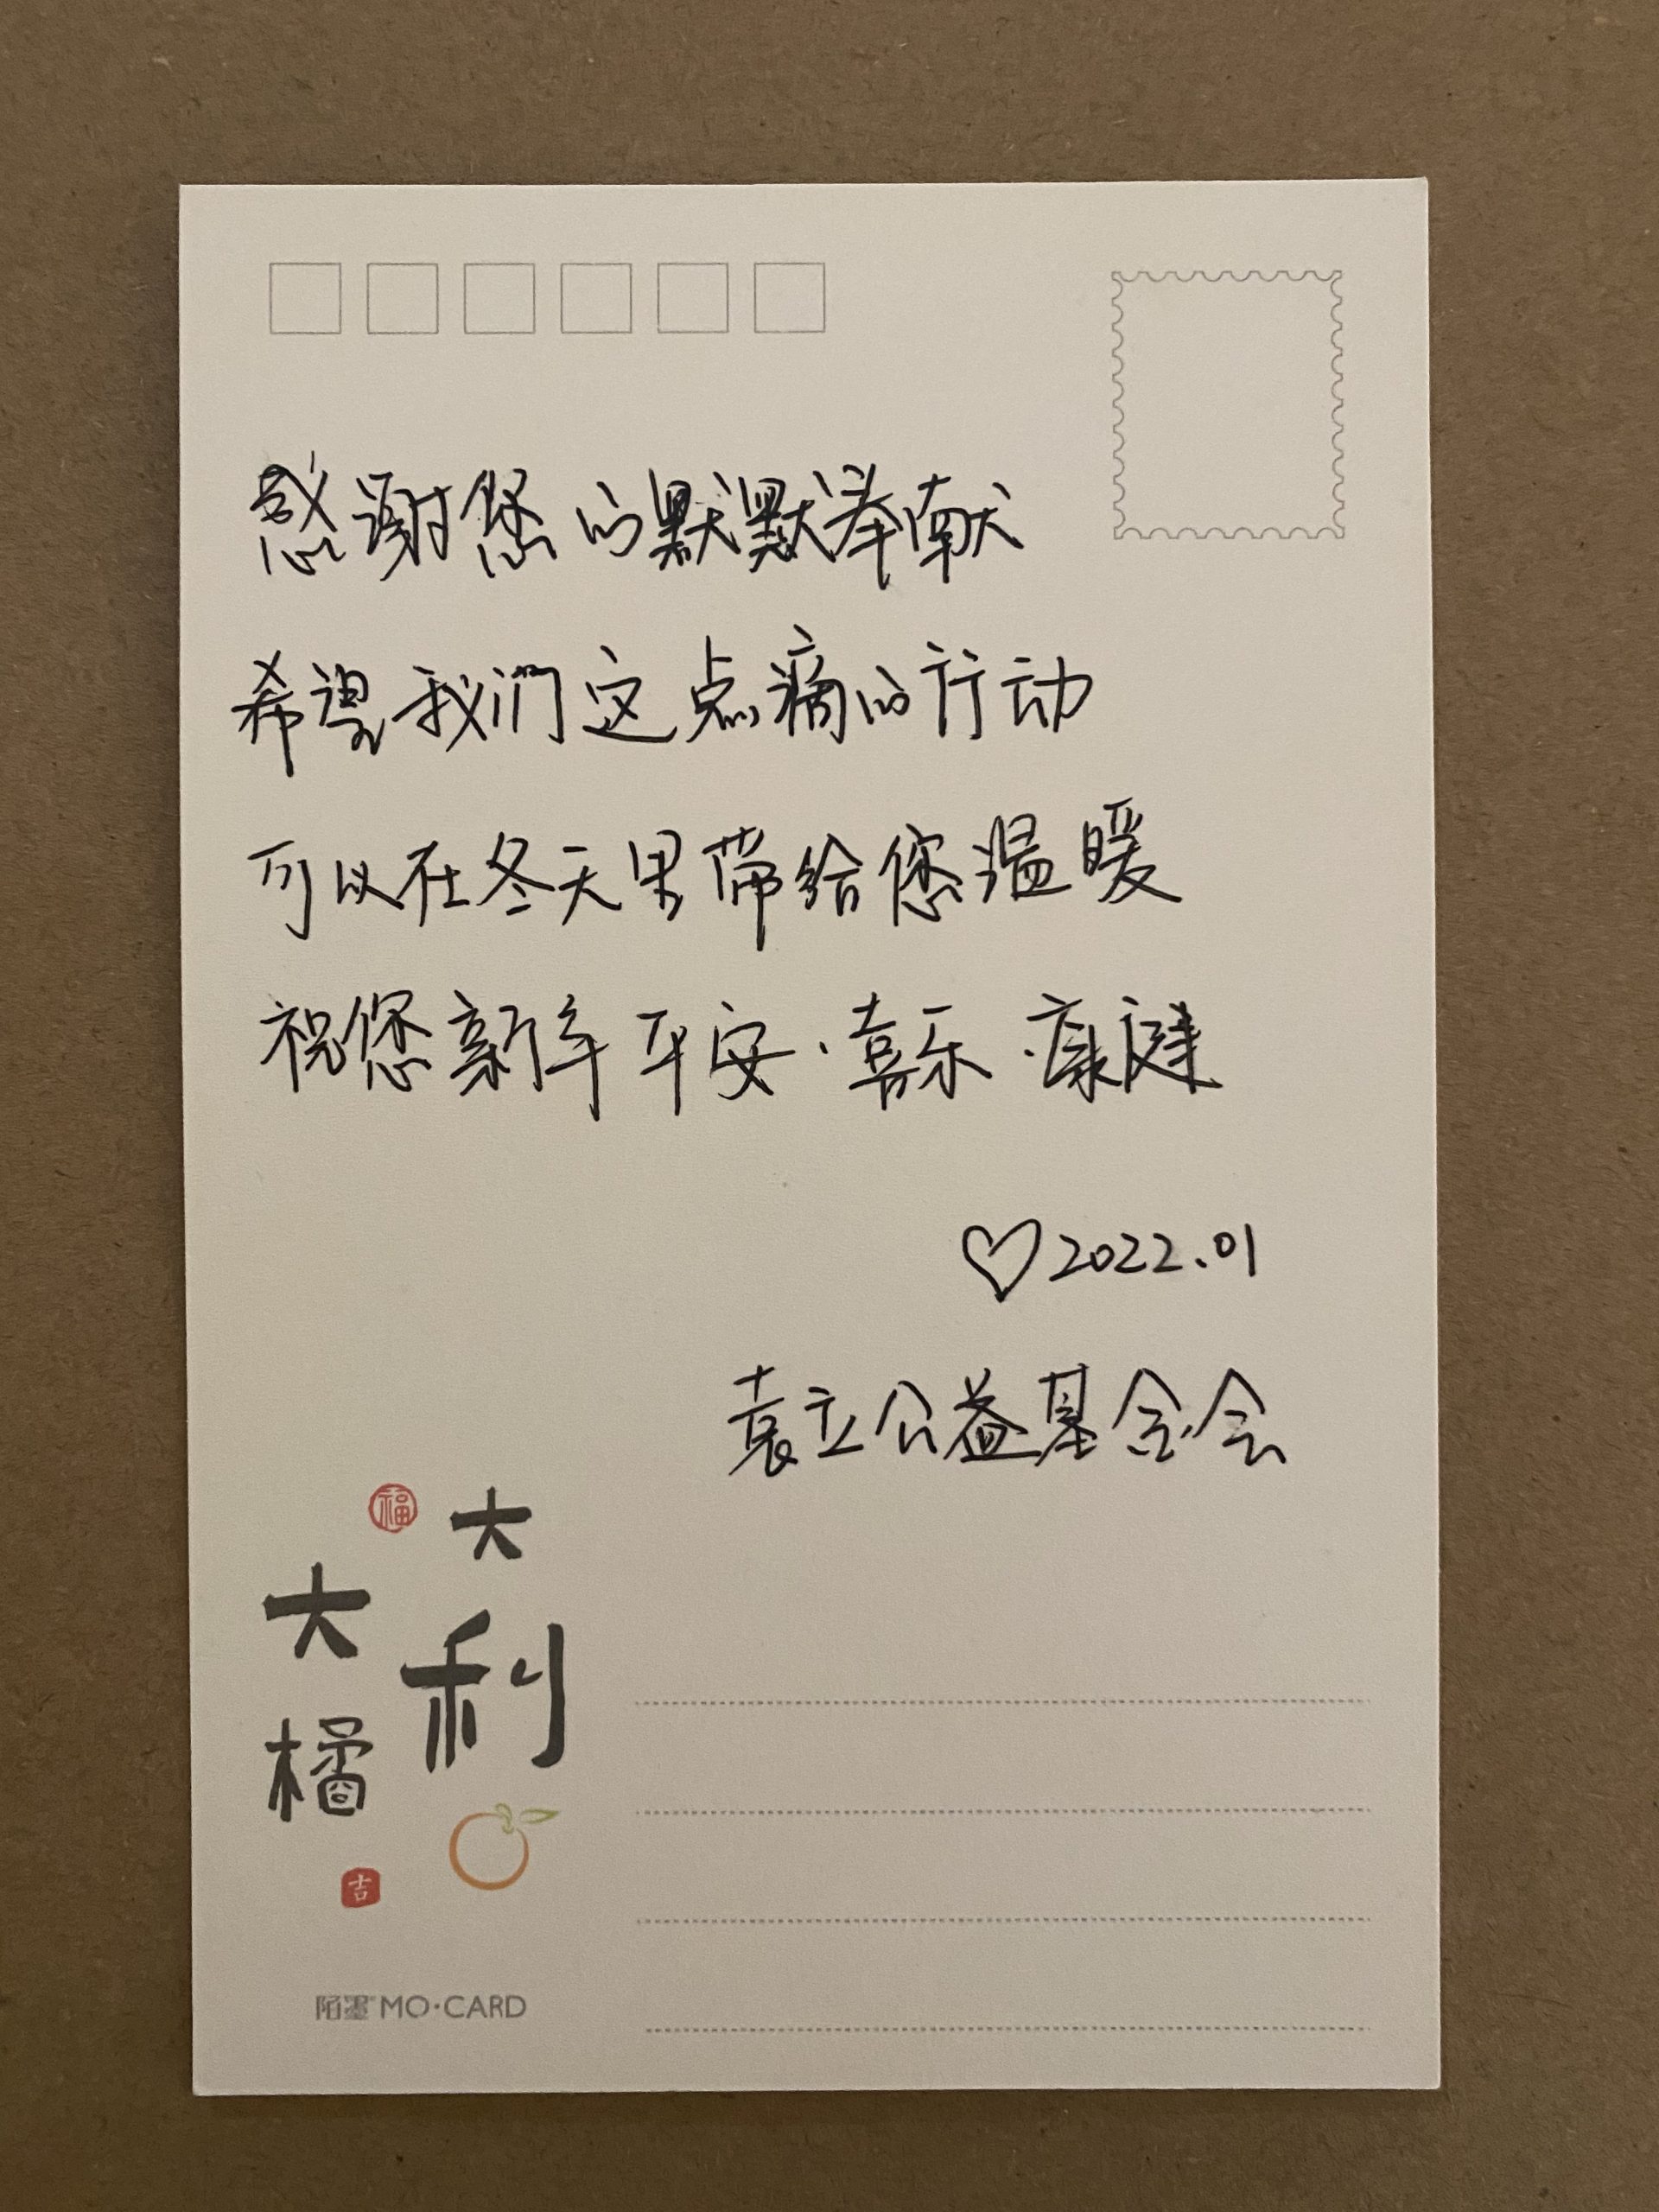 感谢您的默默奉献
希望我们这点滴的行动
可以在冬天里带给您温暖
祝您新年平安·喜乐·康健
♡2022.01
袁立公益基金会
福
大利
大橘
吉
陌墨 MO·CARD